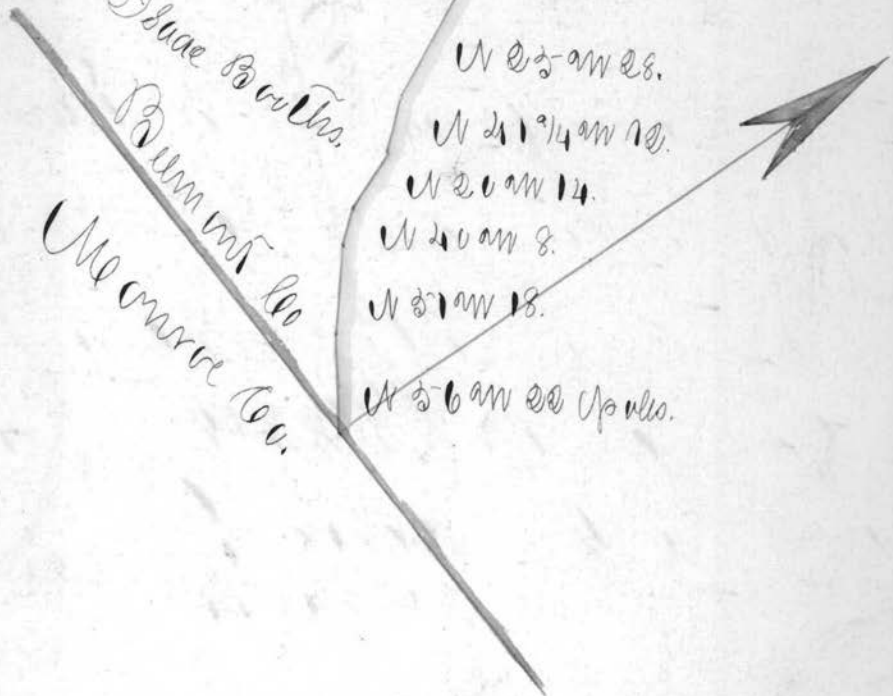 Isaac Booths.
Belmont Co
Monroe Co.
N 25 W 28.
N 41 3/4 W 12.
N 20 W 14.
N 40 W 8.
N 51 W 18.
N 56 W 22 Poles.